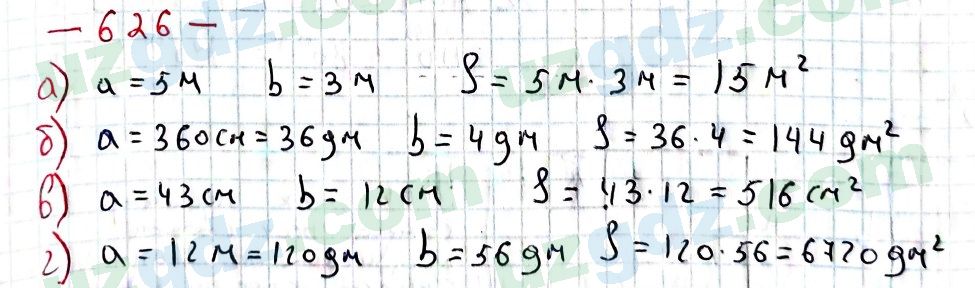 — 626 —
а) a = 5 м b = 3 м S = 5 м · 3 м = 15 м²
б) a = 360 см = 36 дм b = 4 дм S = 36 · 4 = 144 дм²
в) a = 43 см b = 12 см S = 43 · 12 = 516 см²
г) a = 12 м = 120 дм b = 56 дм S = 120 · 56 = 6720 дм²